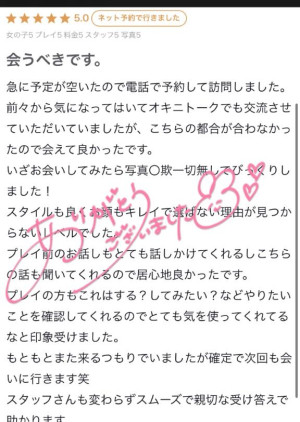 ★★★★★ 5.0 ネット予約で行きました
女の子5 プレイ5 料金5 スタッフ5 写真5
会うべきです。
急に予定が空いたので電話で予約して訪問しました。
前々から気になってはいてオキニトークでも交流させ
ていただいていましたが、こちらの都合が合わなかっ
たので会えて良かったです。
いざお会いしてみたら写真〇欺一切無しでびっくりし
ました！
スタイルも良くお顔もキレイで選ばない理由が見つか
らないレベルでした。
プレイ前のお話しもとても話しかけてくれるしこちら
の話も聞いてくれるので居心地良かったです。
プレイの方もこれはする？してみたい？などやりたい
ことを確認してくれるのでとても気を使ってくれてる
なと印象受けました。
もともとまた来るつもりでいましたが確定で次回も会
いに行きます笑
スタッフさんも変わらずスムーズで親切な受け答えで
助かります
ありがとう
ございました